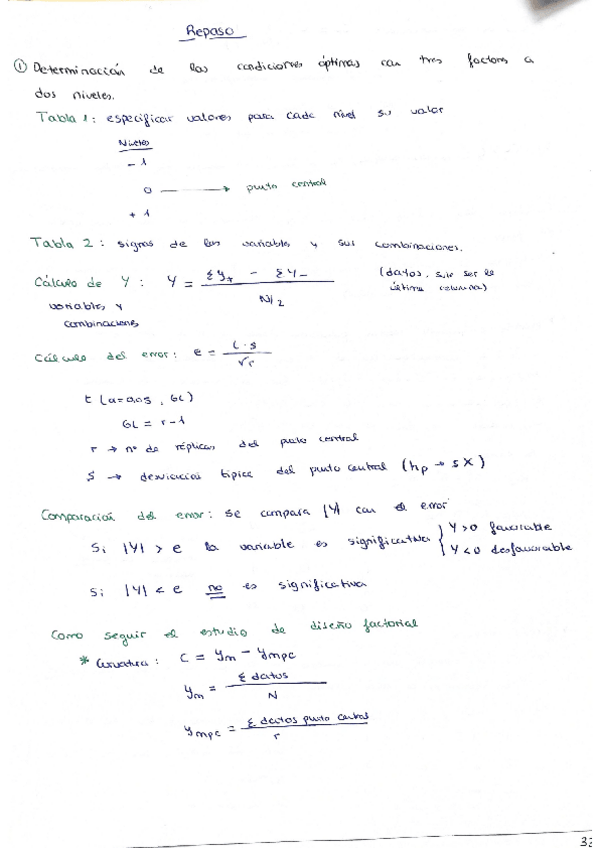 Repaso
① Determinación de las condiciones óptimas con tres factores a
dos niveles.
Tabla 1: especificar valores para cada nivel su valor
Niveles
- 1
0 → punto central
+ 1
Tabla 2: signos de las variables y sus combinaciones.
Cálculo de Y: Y = (Σy+ - Σy-) / (N/2) (datos, suele ser la
variables y última columna)
combinaciones
Cálculo del error: e = (t · s) / √r
t (α=0,05, GL)
GL = r - 1
r → nº de réplicas del punto central
s → desviación típica del punto central (hp → sX)
Comparación del error: se compara |Y| con el error
Si |Y| > e la variable es significativa { Y > 0 favorable
Y < 0 desfavorable
Si |Y| < e no es significativa
Como seguir el estudio de diseño factorial
* Curvatura: C = ym - ympc
ym = Σ datos / N
ympc = Σ datos punto central / r
33